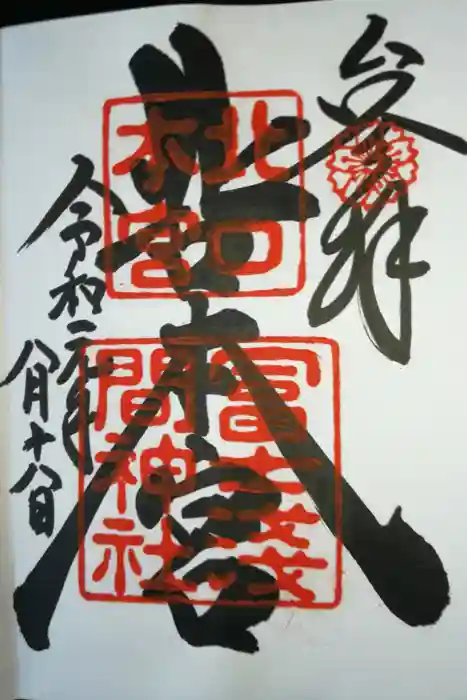 奉拝
北口本宮
北口
本宮
冨士淺
間神社
令和元年
八月十八日